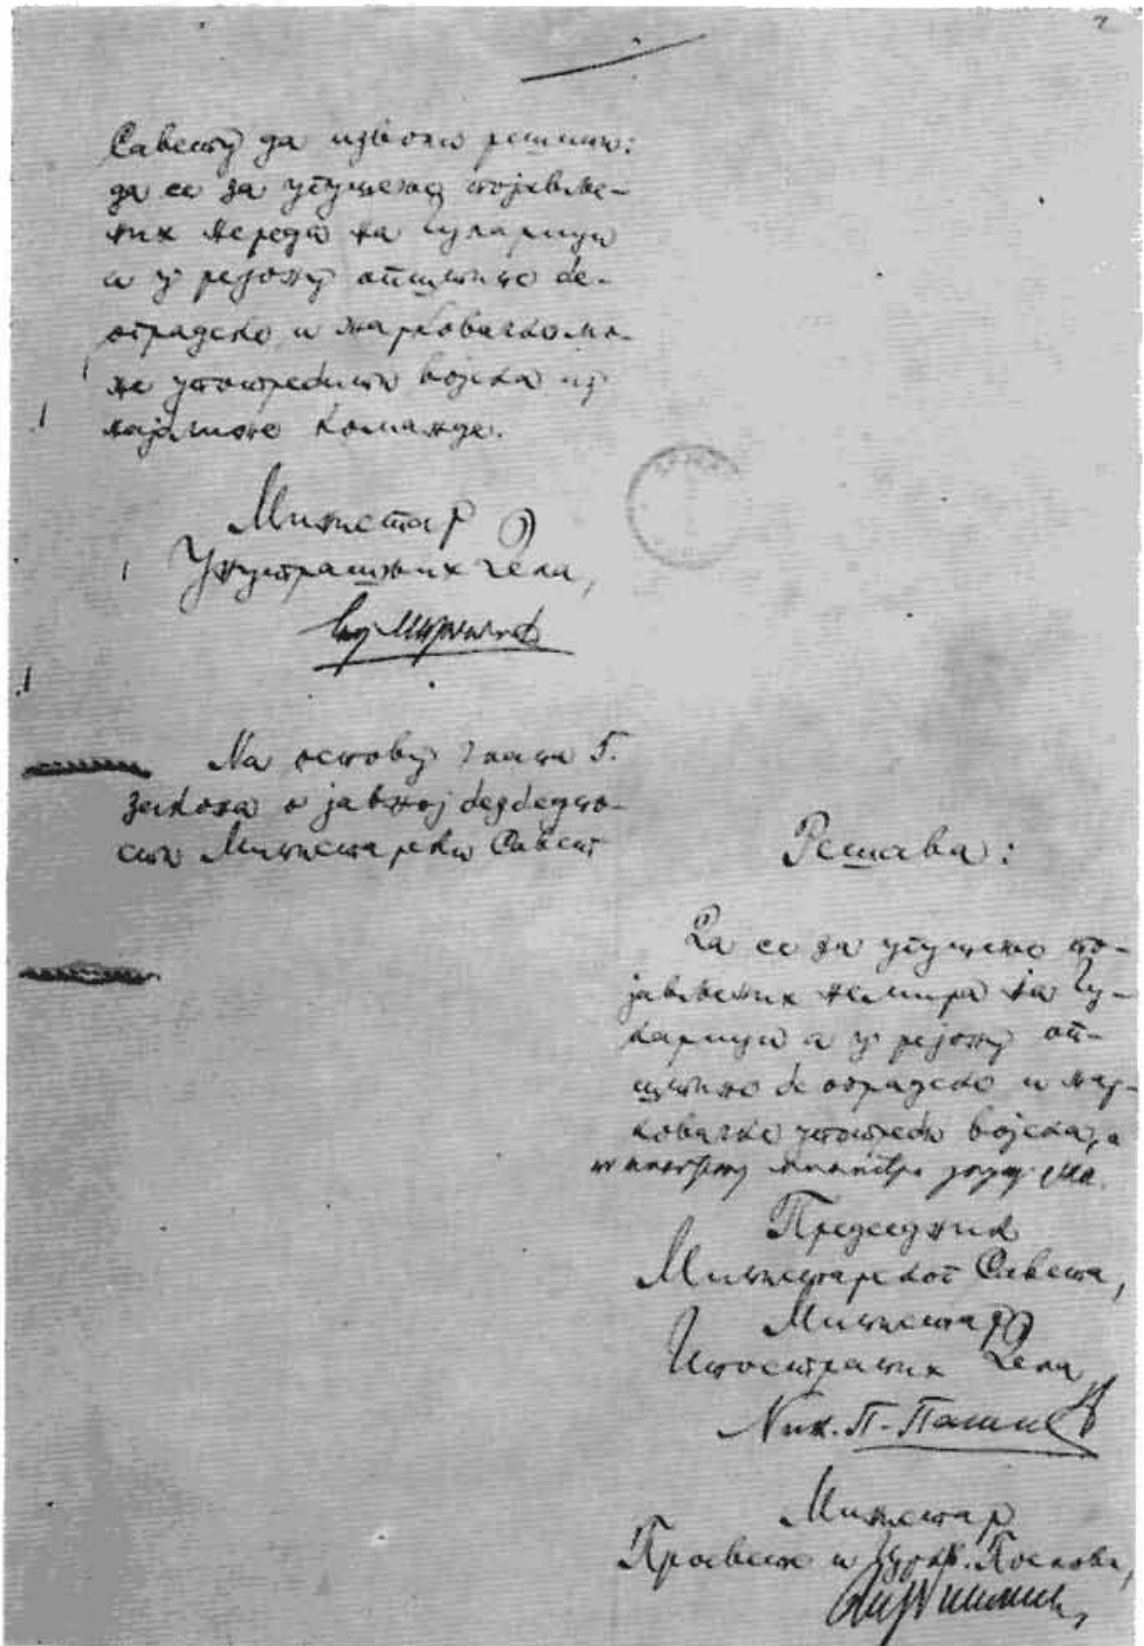 Савету да изволи решити:
да се за угушење појавље-
них нереда на Чукарици
и у рејону општине бе-
оградске и жарковачке мо-
же употребити војска из
овдашње команде.
Министар
Унутрашњих Дела,
На основу члана 5.
Закона о јавној безбедно-
сти Министарски Савет
Решава:
Да се за угушење по-
јављених немира на Чу-
карици и у рејону оп-
штине београдске и жар-
ковачке употреби војска, а
Председник
Министарског Савета,
Министар
Иностраних Дела
Ник. П. Пашић
Министар
Просвете и Црк. Послова,